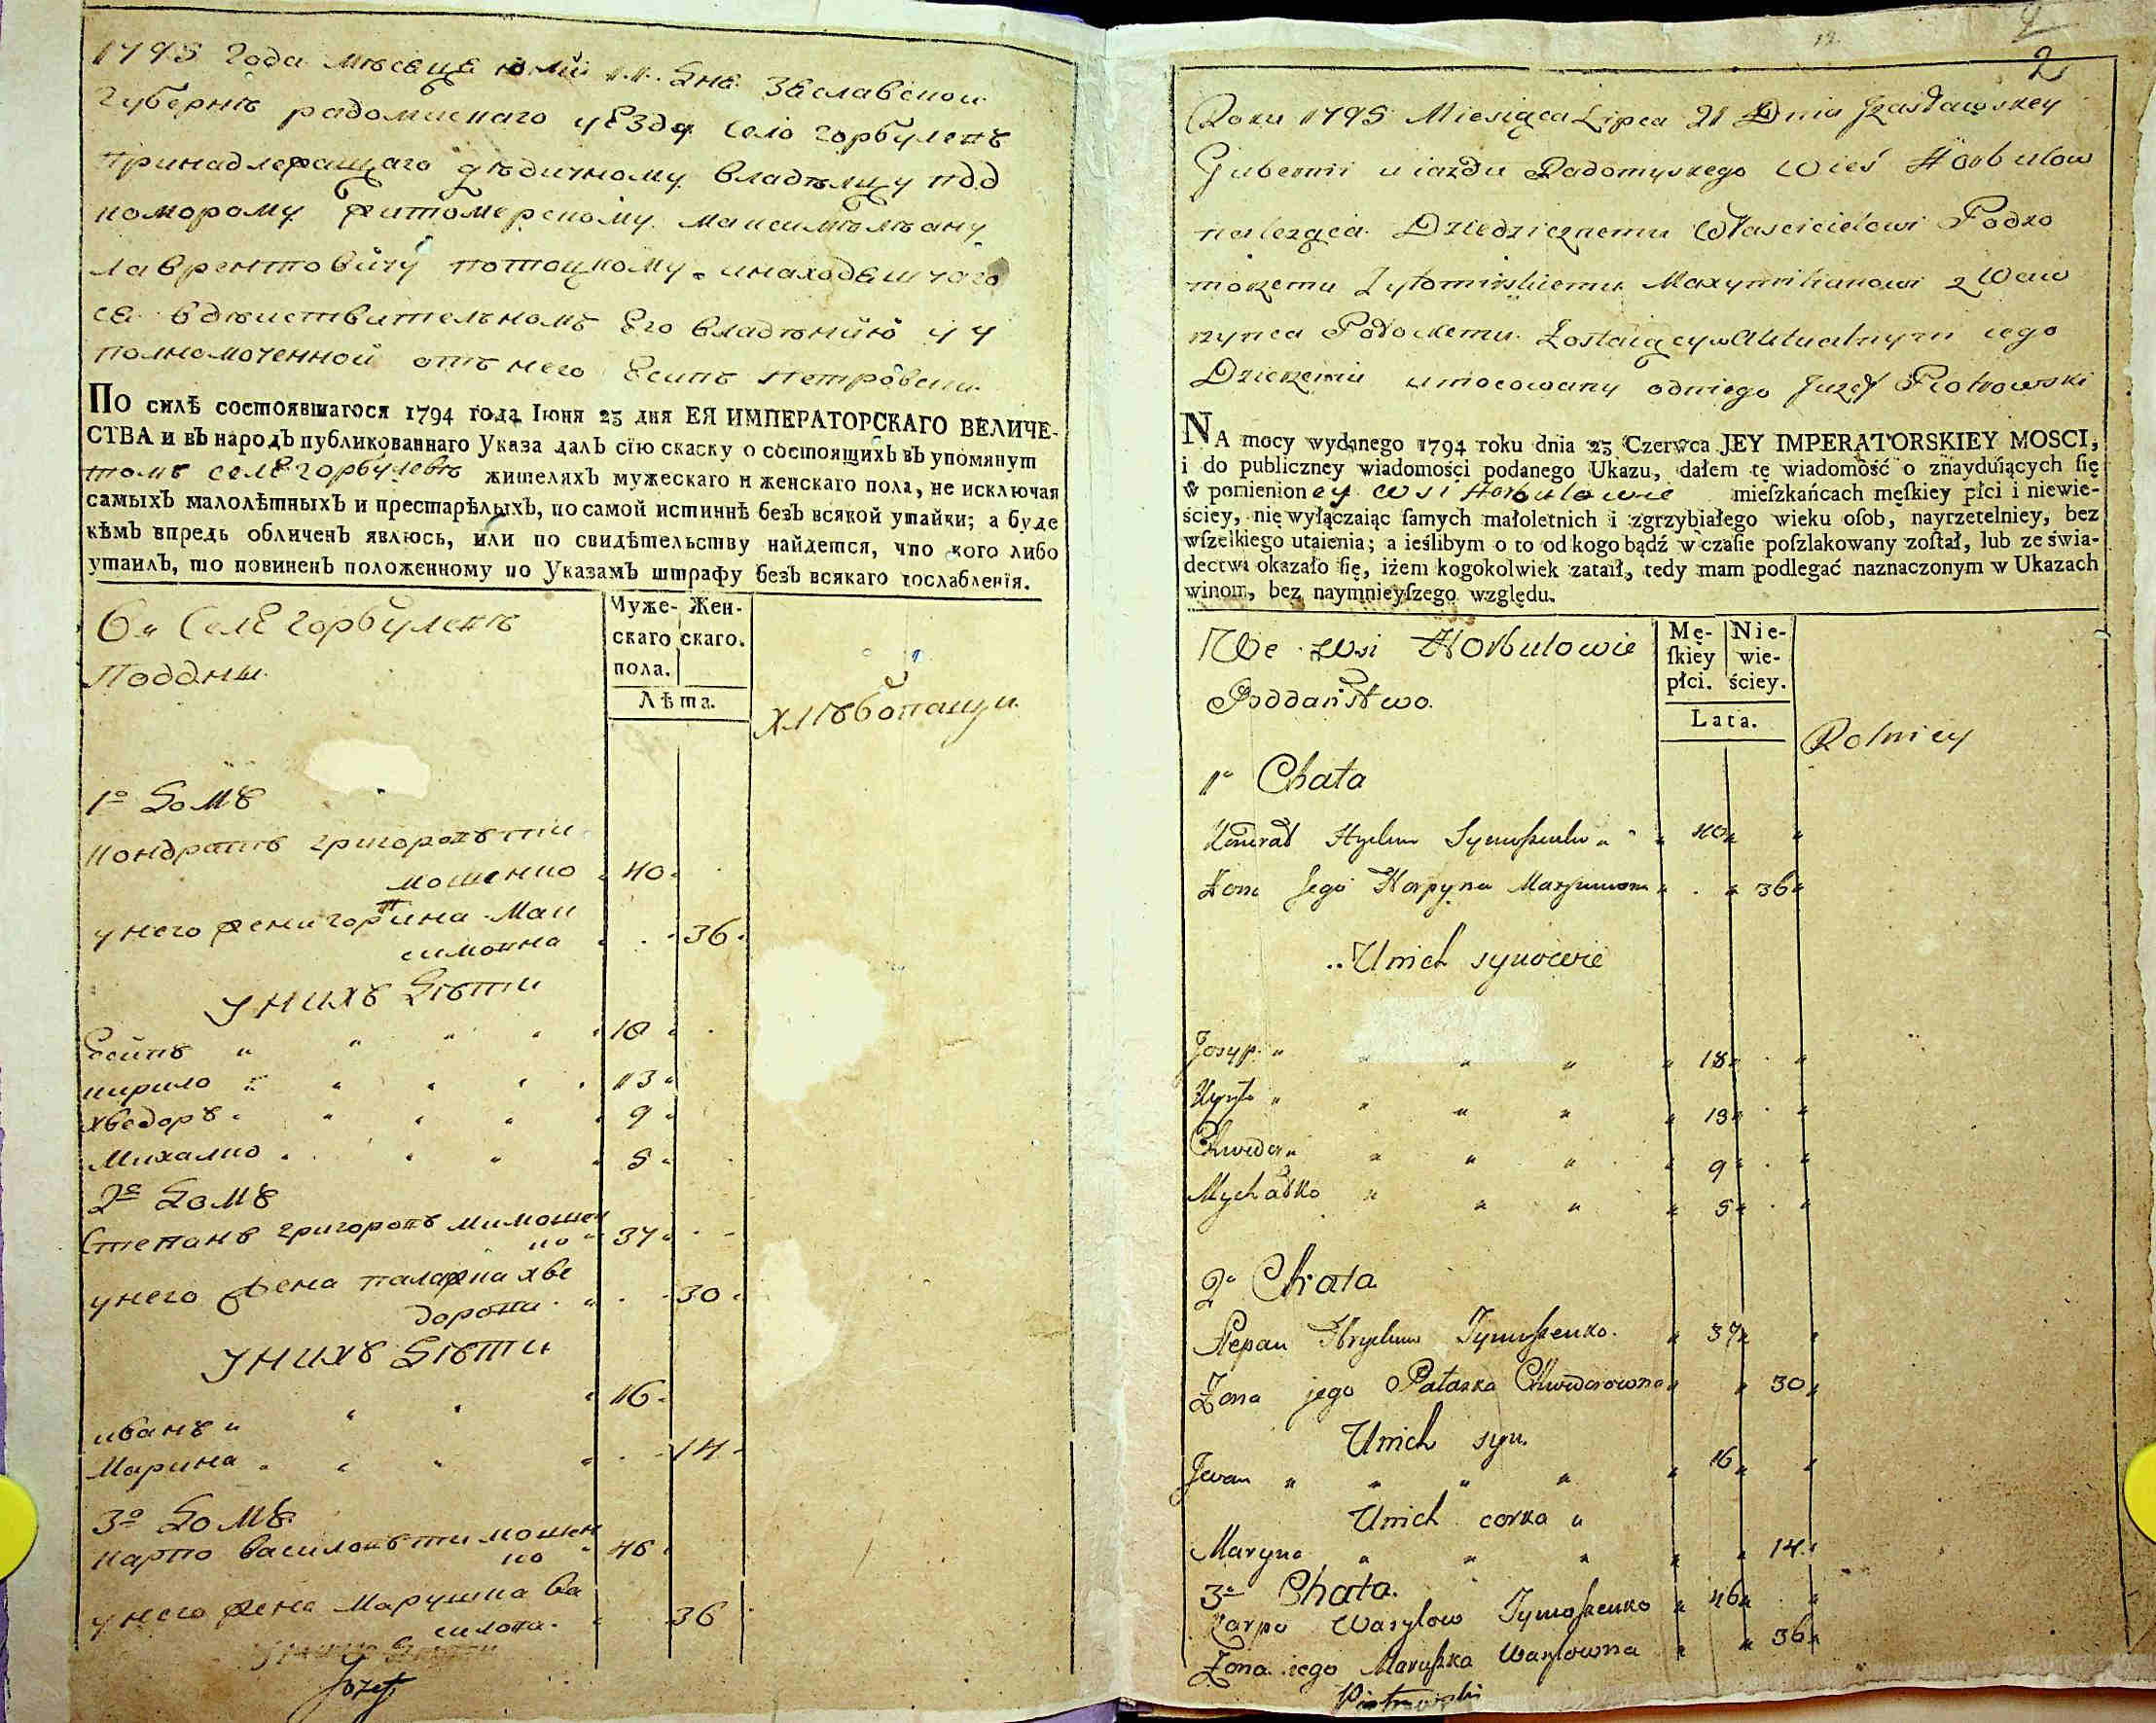 1795 года мѣсеце юлий 11 дне Зеславскои
Губернѣ радомискаго уезду село горбулевъ
принадлежащаго дѣдичному владѣлцу под
коморому житомерскому максимѣлѣану
лаврентовичу потоцкому инаходещчаго
се вдѣиствителномъ Его владѣнию и у
полномоченной отъ него Есипъ петровски
ПО силѣ состоявшагося 1794 года Iюня 23 дня ЕЯ ИМПЕРАТОРСКАГО ВЕЛИЧЕ-
СТВА и вЪ народЪ публикованнаго Указа далЪ сїю скаску о состоящихЪ вЪ упомянут
томъ селе горбулевѣ жителяхЪ мужескаго и женскаго пола, не исключая
самыхЪ малолѣтныхЪ и престарѣлыхЪ, по самой истиннѣ безЪ всякой утайки; а буде
кѣмЪ впредь обличенЪ явлюсь, или по свидѣтельству найдется, что кого либо
утаилЪ, то повиненЪ положенному по УказамЪ штрафу безЪ всякаго послабленїя.
Муже- Жен-
Во Селе горбулевѣ
скаго скаго.
пола.
Поддны
Лѣта.
хлѣбопашци
1о домъ
кондратъ григоровъ ти
мошенко 40
унего жена горпина Мак
симовна 36
унихъ дѣти
Есипъ 18
кирило 13
хведоръ 9
Михалко 5
2о домъ
Степанъ григоровъ тимошен
ко 37
унего жена палажка хве
дорова 30
унихъ дѣти
иванъ 16
Марина 14
3о домъ
карпо василовъ тимошен
ко 46
унего жена Марушка Ва
силова 36
унихъ дѣти
Jozef
2
Roku 1795 Miesiąca Lipca 21 Dnia Jzasławskey
Gubernii uiazdu Radomyskego Wieś Horbulow
należąca Dziedzicznemu Właścicielowi Podko
morzemu Zytomirskiemu Maxymilianowi z Waw
rzynca Potockemu. Zostaiący w Aktualnym iego
Dzierzeniu umocowany odniego Juzef Piotrowski
NA mocy wydanego 1794 roku dnia 23 Czerwca JEY IMPERATORSKIEY MOSCI,
i do publiczney wiadomości podanego Ukazu, dałem tę wiadomość o znayduiących ſię
w pomienioney wsi Horbulowie mieſzkańcach męſkiey płci i niewie-
ściey, nie wyłączaiąc ſamych małoletnich i zgrzybiałego wieku oſob, nayrzetelniey, bez
wſzelkiego utaienia; a ieślibym o to od kogo bądź w czaſie poſzlakowany zoſtał, lub ze świa-
dectwa okazało ſię, iżem kogokolwiek zataił, tedy mam podlegać naznaczonym w Ukazach
winom, bez naymnieyſzego względu.
We wsi Horbulowie
Mę- Nie-
ſkiey wie-
płci. ściey.
Poddaństwo.
Lata.
Rolnicy
1a Chata
Kondrat Hrehorow Tymoszenko 40
Zona Jego Horpyna Maxymowna 36
Unich synowie
Josyp 18
Kyryło 13
Chwedor 9
Mychałko 5
2a Chata
Stepan Hryhorow Tymoszenko. 37
Zona jego Pałaszka Chwedorowna 30
Unich syn.
Jwan 16
Unich corka
Maryna 14
3a Chata.
Karpo Wasylow Tymoszenko 46
Zona iego Maruszka Wasylowna 36
Piotrowski